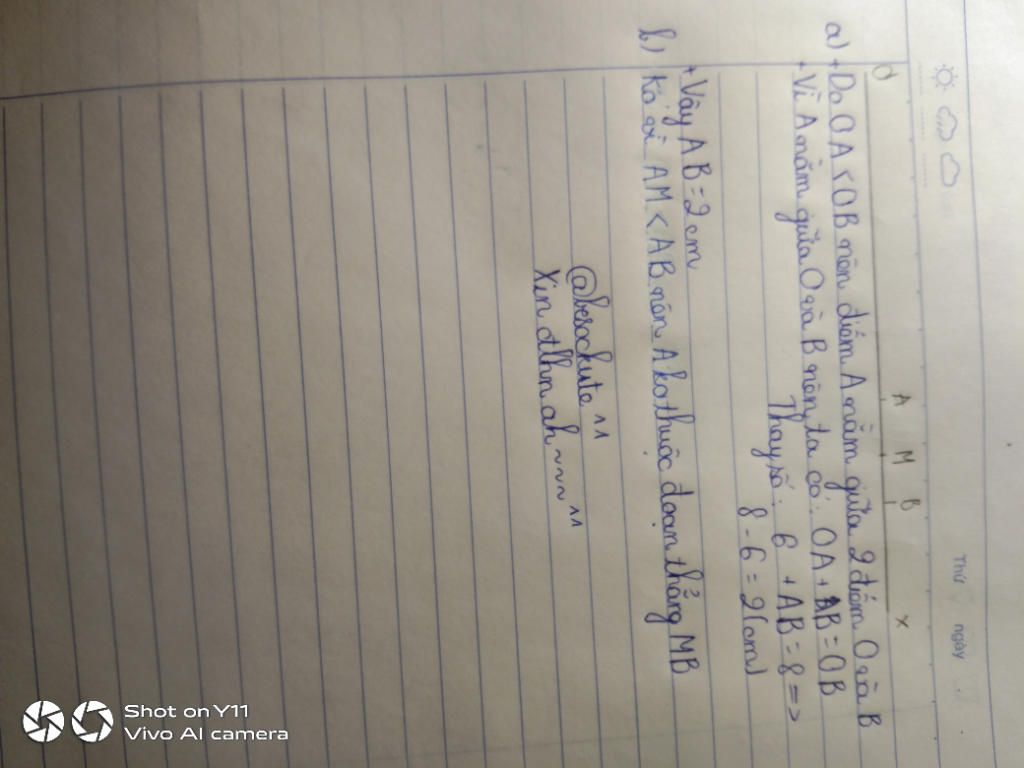 Thứ ngày
A M B x
O
a) + Do OA < OB nên điểm A nằm giữa 2 điểm O và B
+ Vì A nằm giữa O và B nên ta có: OA + AB = OB
Thay số: 6 + AB = 8 =>
8 - 6 = 2(cm)
+ Vậy AB = 2 cm
b) Ko vì AM < AB nên A ko thuộc đoạn thẳng MB
Xin đlhn ah ~~~ ^^
Shot on Y11
Vivo AI camera